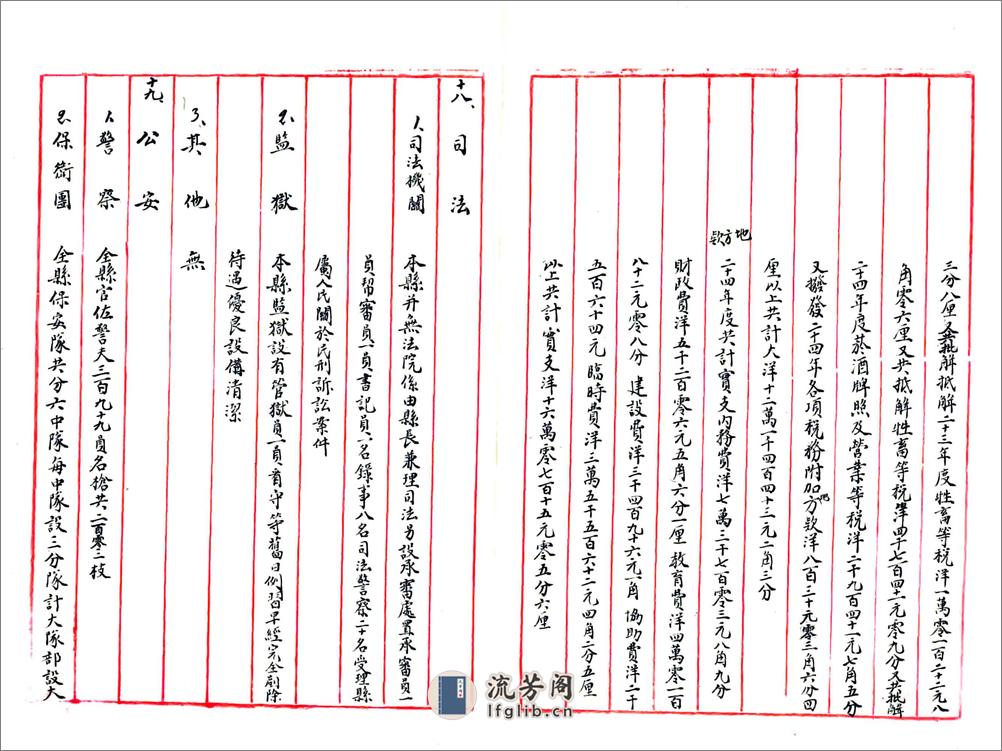 三分八厘又共抵解二十三年度牲畜等稅洋一萬零一百二十二元八
角零六厘又共抵解牲畜等稅洋四千七百四十一元零九分又共抵解
二十四年度菸酒牌照及營業等稅洋二千九百四十一元七角五分
又撥發二十四年各項稅務附加地方欵洋八百三十元零三角六分四
厘以上共計大洋十二萬一千四百四十三元二角三分
地方欵
二十四年度共計實支內務費洋七萬三千七百零三元八角九分
財政費洋五千二百零六元五角六分一厘 教育費洋四萬零一百
八十二元零八分 建設費洋三千四百九十六元一角 協助費洋二千
五百六十四元 臨時費洋三萬五千五百六十二元四角二分五厘
以上共計實支洋十六萬零七百十五元零五分六厘
十八、司法
1、司法機關 本縣并無法院係由縣長兼理司法另設承審處置承審員一
員帮審員一員書記員一名錄事八名司法警察二十名受理縣
屬人民關於民刑訴訟案件
2、監獄 本縣監獄設有管獄員一員看守等舊日例習早經完全剷除
待遇優良設備清潔
3、其他 無
十九、公安
1、警察 全縣官佐警夫三百九十九員名槍共二百零二枝
2、保衛團 全縣保安隊共分六中隊每中隊設三分隊計大隊部設大
流芳阁
lfglib.cn